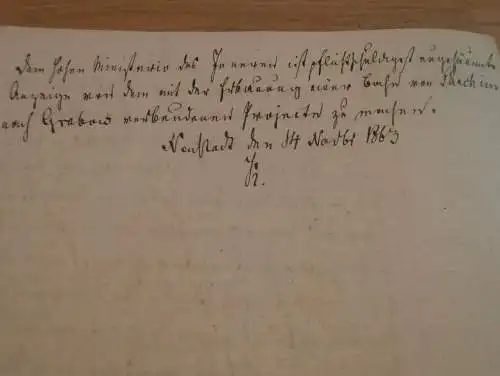 Dem hohen Ministerio des Inneren ist pflichtschuldigst ungesäumte
Anzeige von dem mit der Erbauung einer Bahn von Parchim
nach Grabow verbundenen Projecte zu machen.
Neustadt den 14 Novbr 1863